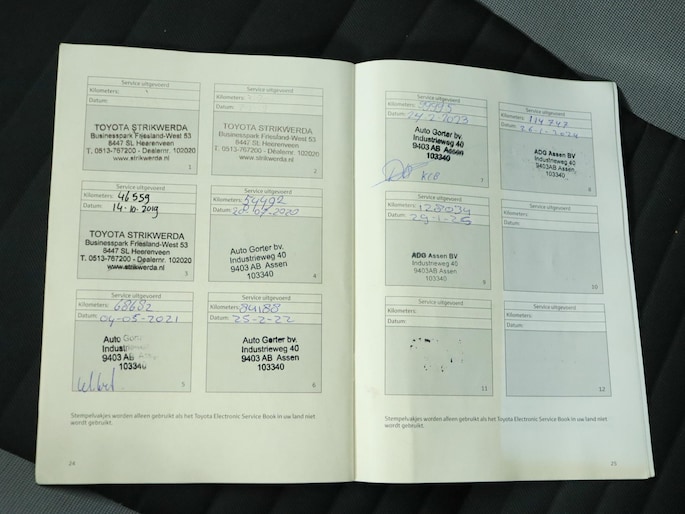 Service uitgevoerd
Kilometers:
Datum:
TOYOTA STRIKWERDA
Businesspark Friesland-West 53
8447 SL Heerenveen
T. 0513-767200 - Dealernr. 102020
www.strikwerda.nl
1
Service uitgevoerd
Kilometers:
Datum:
TOYOTA STRIKWERDA
Businesspark Friesland-West 53
8447 SL Heerenveen
T. 0513-767200 - Dealernr. 102020
www.strikwerda.nl
2
Service uitgevoerd
Kilometers: 46559
Datum: 14-10-2019
TOYOTA STRIKWERDA
Businesspark Friesland-West 53
8447 SL Heerenveen
T. 0513-767200 - Dealernr. 102020
www.strikwerda.nl
3
Service uitgevoerd
Kilometers: 54492
Datum:
Auto Gorter bv.
Industrieweg 40
9403 AB Assen
103340
4
Service uitgevoerd
Kilometers: 68682
Datum: 04-05-2021
Auto Gorter
Indust
9403 AB Assen
103340
5
Service uitgevoerd
Kilometers: 84188
Datum: 25-2-22
Auto Gorter bv.
Industrieweg 40
9403 AB Assen
103340
6
Stempelvakjes worden alleen gebruikt als het Toyota Electronic Service Book in uw land niet
wordt gebruikt.
24
Service uitgevoerd
Kilometers:
Datum: 24-2-2023
Auto Gorter bv.
Industrieweg 40
9403 AB Assen
103340
7
Service uitgevoerd
Kilometers: 114747
Datum:
ADG Assen BV
Industrieweg 40
9403 AB Assen
103340
8
Service uitgevoerd
Kilometers: 128034
Datum: 29-1-25
ADG Assen BV
Industrieweg 40
9403 AB Assen
103340
9
Service uitgevoerd
Kilometers:
Datum:
10
Service uitgevoerd
Kilometers:
Datum:
11
Service uitgevoerd
Kilometers:
Datum:
12
Stempelvakjes worden alleen gebruikt als het Toyota Electronic Service Book in uw land niet
wordt gebruikt.
25